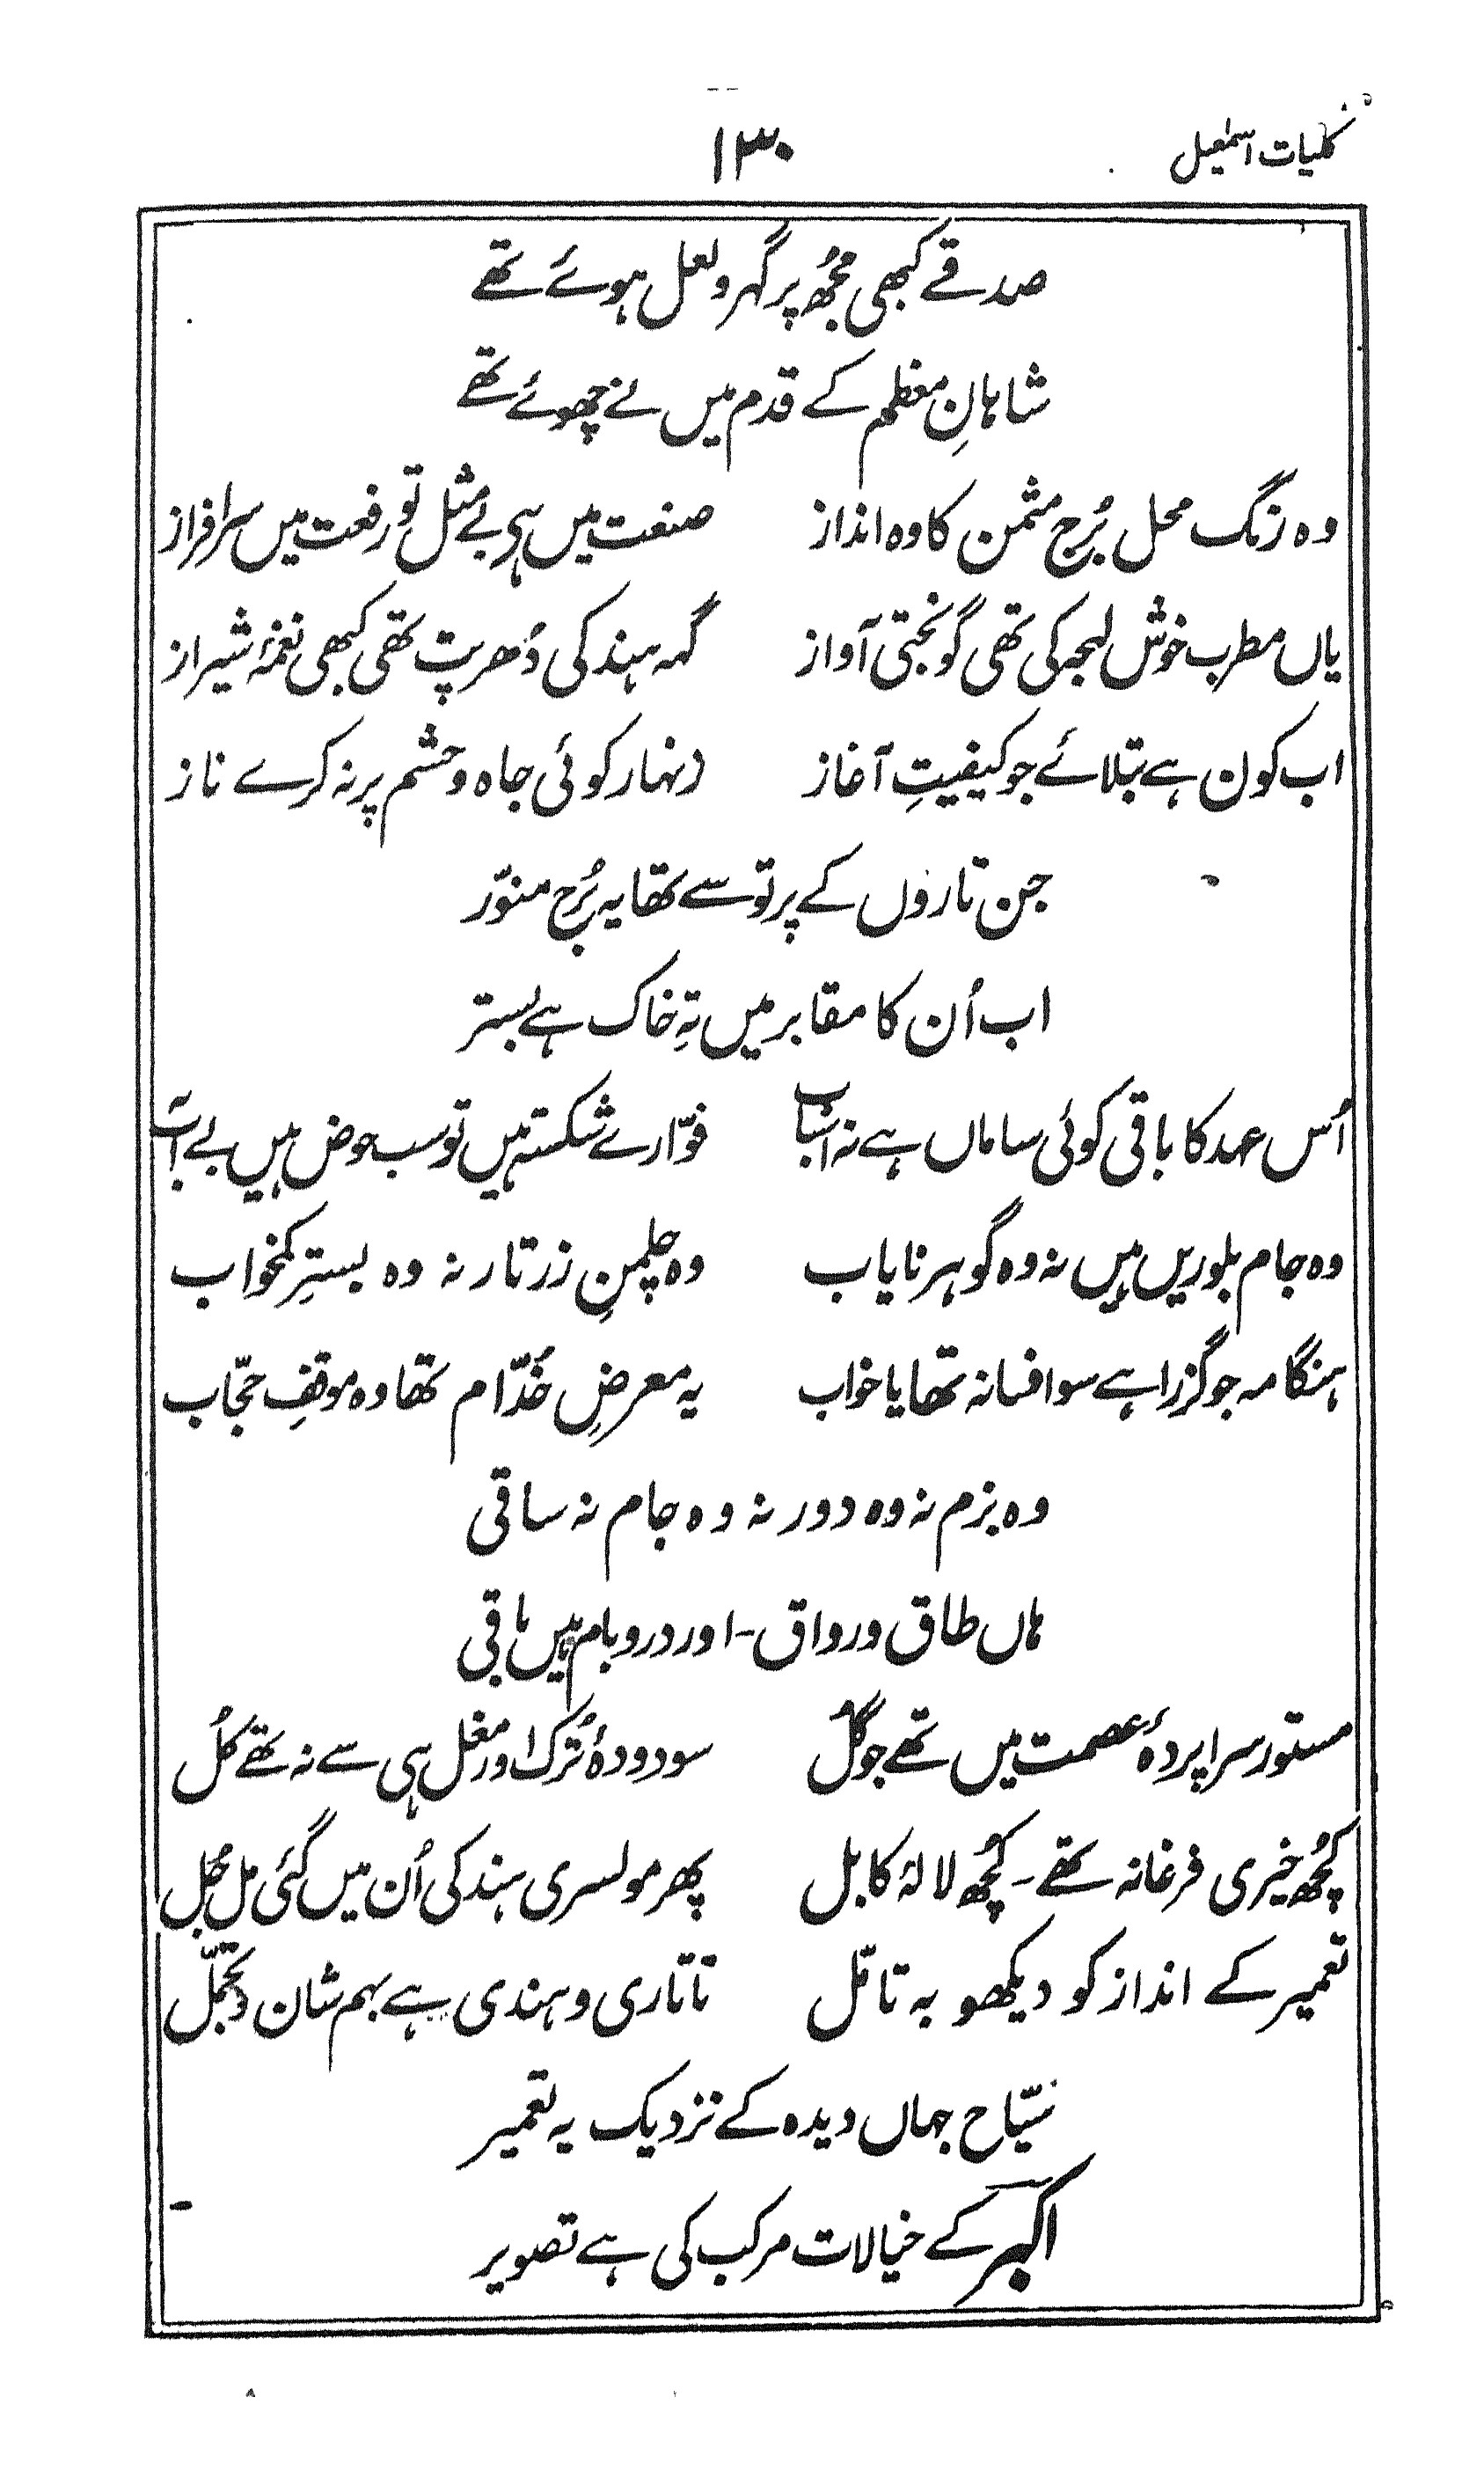 کلیات اسمٰعیل ۱۳۰
صدقے کبھی مجھ پر گہر و لعل ہوئے تھے
شاہانِ معظم کے قدم میں نے چھوئے تھے
وہ رنگ محل بُرج مثمن کا وہ انداز صنعت میں ہی بے مثل تو رفعت میں سرافراز
یاں مطرب خوش لہجہ کی تھی گونجتی آواز گہہ ہند کی دُھرپت تھی کبھی نغمۂ شیراز
اب کون ہے بتلائے جو کیفیتِ آغاز زنہار کوئی جاہ و حشم پر نہ کرے ناز
جن تاروں کے پرتو سے تھا یہ بُرج منوّر
اب اُن کا مقابر میں تہِ خاک ہے بستر
اُس عہد کا باقی کوئی ساماں ہے نہ اسباب فوّارے شکستہ ہیں تو سب حوض ہیں بے آب
وہ جام بلوریں ہیں نہ وہ گوہر نایاب وہ چلمنِ زرتار نہ وہ بسترِ کمخواب
ہنگامہ جو گزرا ہے سو افسانہ تھا یا خواب یہ معرضِ خُدّام تھا وہ موقفِ حجّاب
وہ بزم نہ وہ دور نہ وہ جام نہ ساقی
ہاں طاق و رواق - اور در و بام ہیں باقی
مستور سراپردۂ عصمت میں تھے جو گُل سو دودۂ تُرک اور مغل ہی سے نہ تھے کُل
کُچھ خیری فرغانہ تھے - کُچھ لالۂ کابل پھر مولسری ہند کی اُن میں گئی مل جُل
تعمیر کے انداز کو دیکھو بہ تامّل تاتاری و ہندی ہے بہم شان و تجمّل
سیّاح جہاں دیدہ کے نزدیک یہ تعمیر
اکبر کے خیالات مرکب کی ہے تصویر